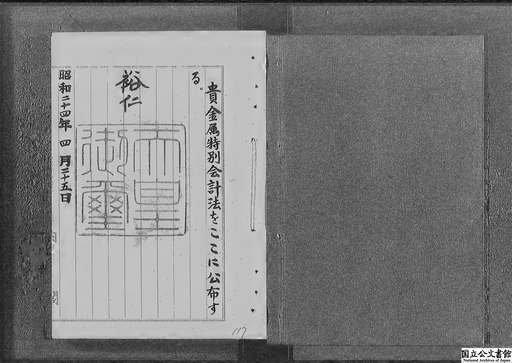 貴金属特別会計法をここに公布す
る。
裕仁
天皇
御璽
昭和二十四年四月二十五日
内閣
117
国立公文書館
National Archives of Japan